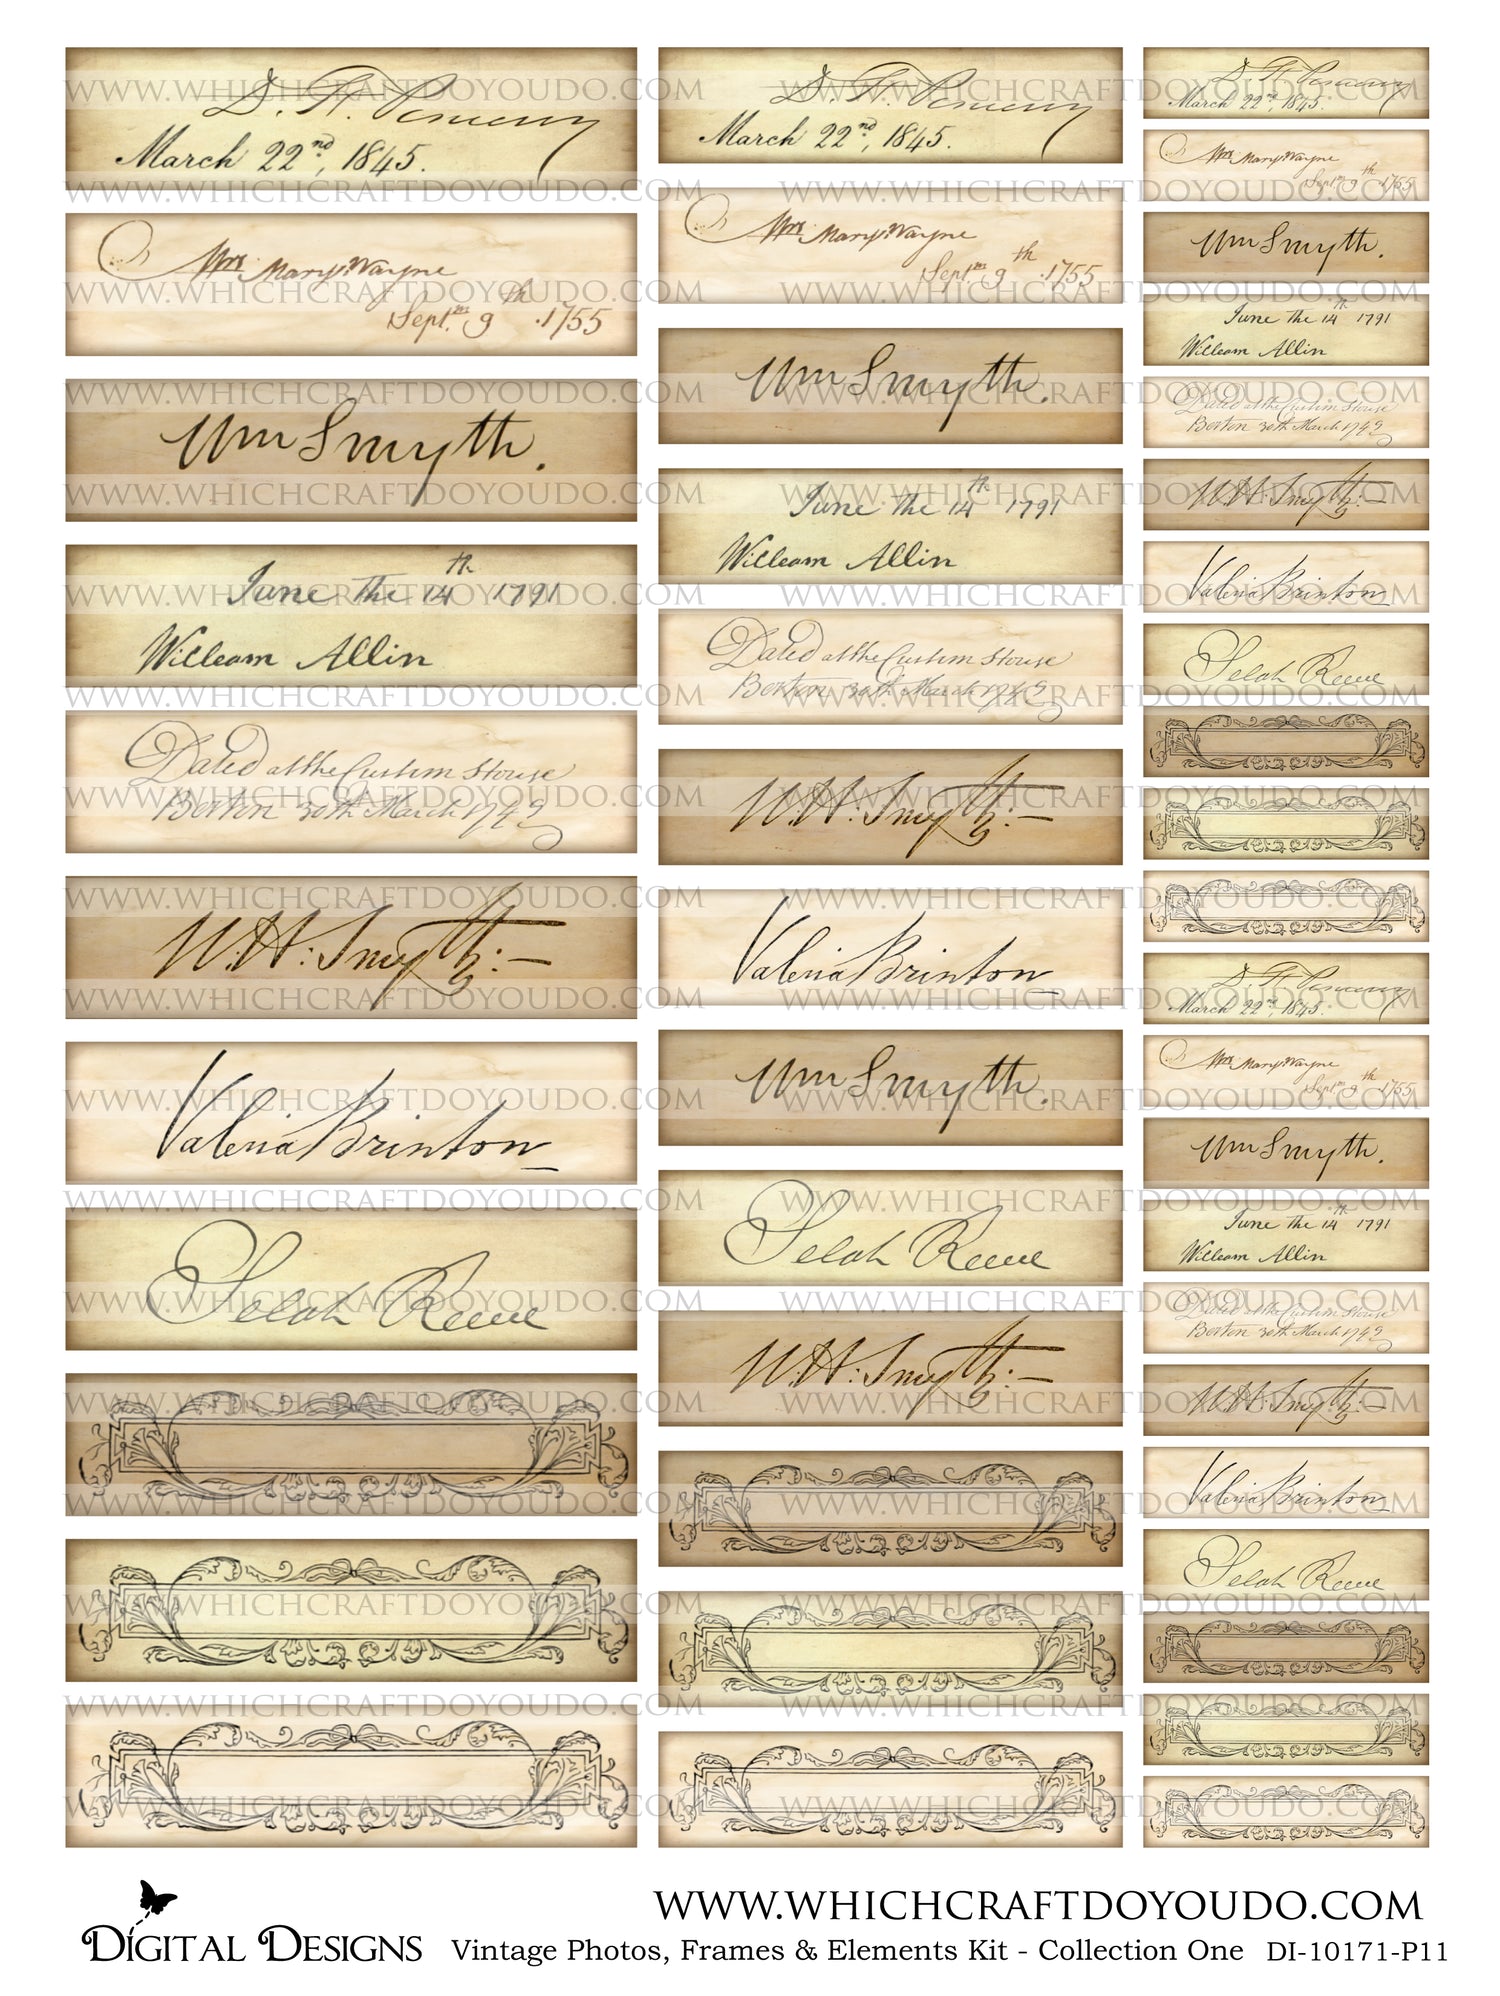 D. H. Pomeroy
March 22nd, 1845.
Mrs Mary Wayne
Sept. 9th 1755
Wm Smyth.
June the 14th 1791
William Allin
Dated at the Custom House
Boston 30th March 1749
W.H: Smyth:—
Valeria Brinton
Selah Reeve
D. H. Pomeroy
March 22nd, 1845.
Mrs Mary Wayne
Sept. 9th 1755
Wm Smyth.
June the 14th 1791
William Allin
Dated at the Custom House
Boston 30th March 1749
W.H: Smyth:—
Valeria Brinton
Wm Smyth.
Selah Reeve
W.H: Smyth:—
D. H. Pomeroy
March 22nd, 1845.
Mrs Mary Wayne
Sept. 9th 1755
Wm Smyth.
June the 14th 1791
William Allin
Dated at the Custom House
Boston 30th March 1749
W.H: Smyth:—
Valeria Brinton
Selah Reeve
D. H. Pomeroy
March 22nd, 1845.
Mrs Mary Wayne
Sept. 9th 1755
Wm Smyth.
June the 14th 1791
William Allin
Dated at the Custom House
Boston 30th March 1749
W.H: Smyth:—
Valeria Brinton
Selah Reeve
WWW.WHICHCRAFTDOYOUDO.COM
DIGITAL DESIGNS Vintage Photos, Frames & Elements Kit - Collection One DI-10171-P11